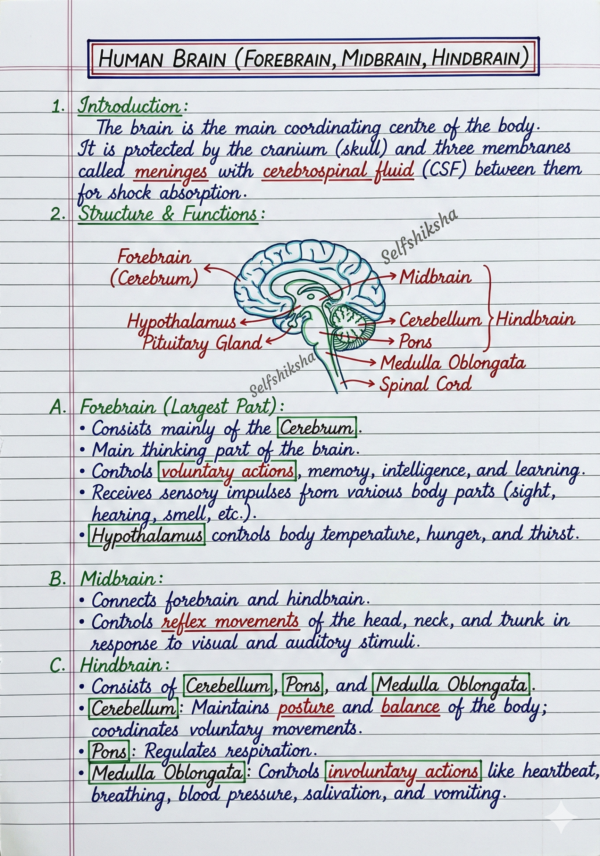 HUMAN BRAIN (FOREBRAIN, MIDBRAIN, HINDBRAIN)
1. Introduction:
The brain is the main coordinating centre of the body.
It is protected by the cranium (skull) and three membranes
called meninges with cerebrospinal fluid (CSF) between them
for shock absorption.
2. Structure & Functions:
Selfshiksha
Forebrain
(Cerebrum)
Midbrain
Hypothalamus
Cerebellum
Hindbrain
Pituitary Gland
Pons
Medulla Oblongata
Selfshiksha
Spinal Cord
A. Forebrain (Largest Part):
• Consists mainly of the Cerebrum.
• Main thinking part of the brain.
• Controls voluntary actions, memory, intelligence, and learning.
• Receives sensory impulses from various body parts (sight,
hearing, smell, etc.).
• Hypothalamus controls body temperature, hunger, and thirst.
B. Midbrain:
• Connects forebrain and hindbrain.
• Controls reflex movements of the head, neck, and trunk in
response to visual and auditory stimuli.
C. Hindbrain:
• Consists of Cerebellum, Pons, and Medulla Oblongata.
• Cerebellum: Maintains posture and balance of the body;
coordinates voluntary movements.
• Pons: Regulates respiration.
• Medulla Oblongata: Controls involuntary actions like heartbeat,
breathing, blood pressure, salivation, and vomiting.